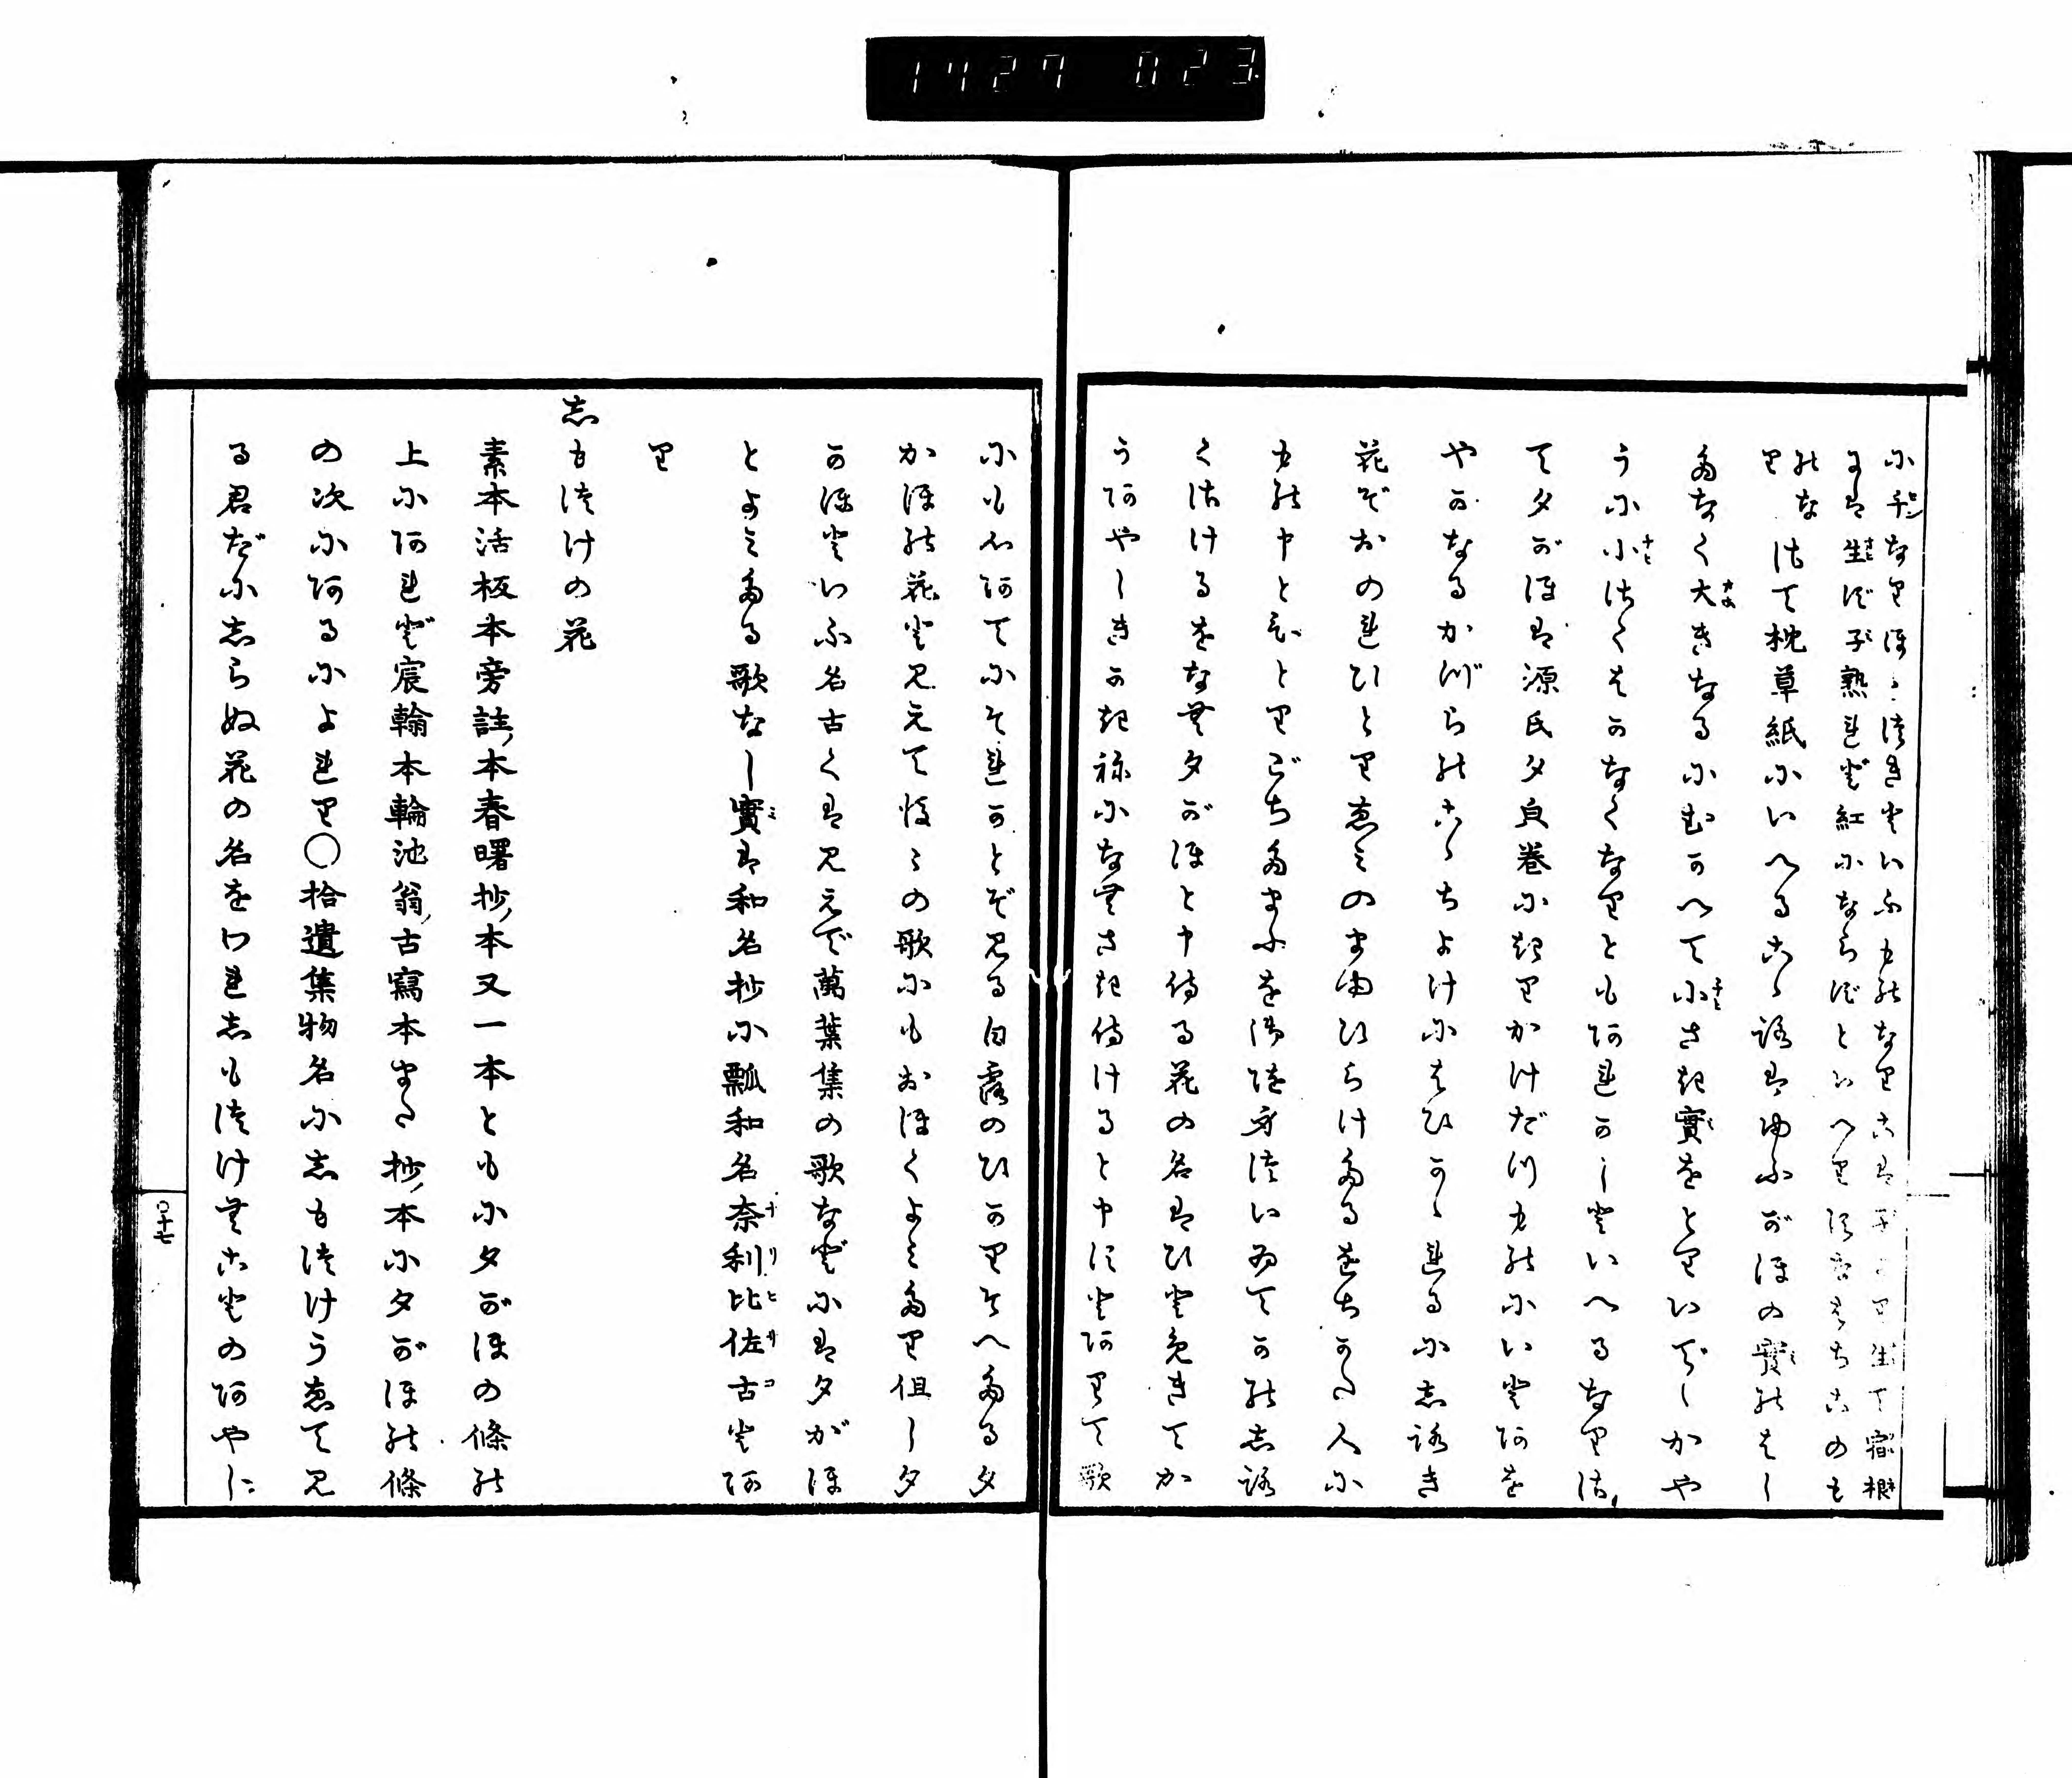 1427 023
にチヒンなりほゝつきといふものなりこは子より生て宿根
よは生ず子熟れば紅にならずといへり
のなつて枕草紙にいへるこゝろはゆふがほの實のはし
り
たなく大きなるにむかへて小さき實をとりいでしかや
うに小つくはかなくなりともあれかしといへるなりつ
て夕がほは源氏夕皃卷にきりかけだつものにいとあを
やかなるかづらのこゝちよけにはひかゝれるに志ろき
花ぞおのれひとりゑみのまゆひらけたるをちかた人に
もの申とひとりごちたまふを御隨身ついゐてかの志ろ
くさけるをなむ夕がほと申侍る花の名はひとめきてか
うあやしきかきねになむさき侍けると申すとありて歌
にも心あてにそれかとぞ見る白露のひかりそへたる夕
かほの花と見えて後々の歌にもおほくよみたり但し夕
かほといふ名古くは見えで萬葉集の歌などには夕がほ
とよみたる歌なし實は和名抄に瓢和名奈利比佐古とあ
り
志もつけの花
素本活板本旁註本春曙抄本又一本ともに夕がほの條の
上にあれど宸翰本輪池翁古寫本また抄本に夕がほの條
の次にあるによれり〇拾遺集物名に志もつけうゑて見
る君だに志らぬ花の名をわれ志もつけむことのあやし
〇十七